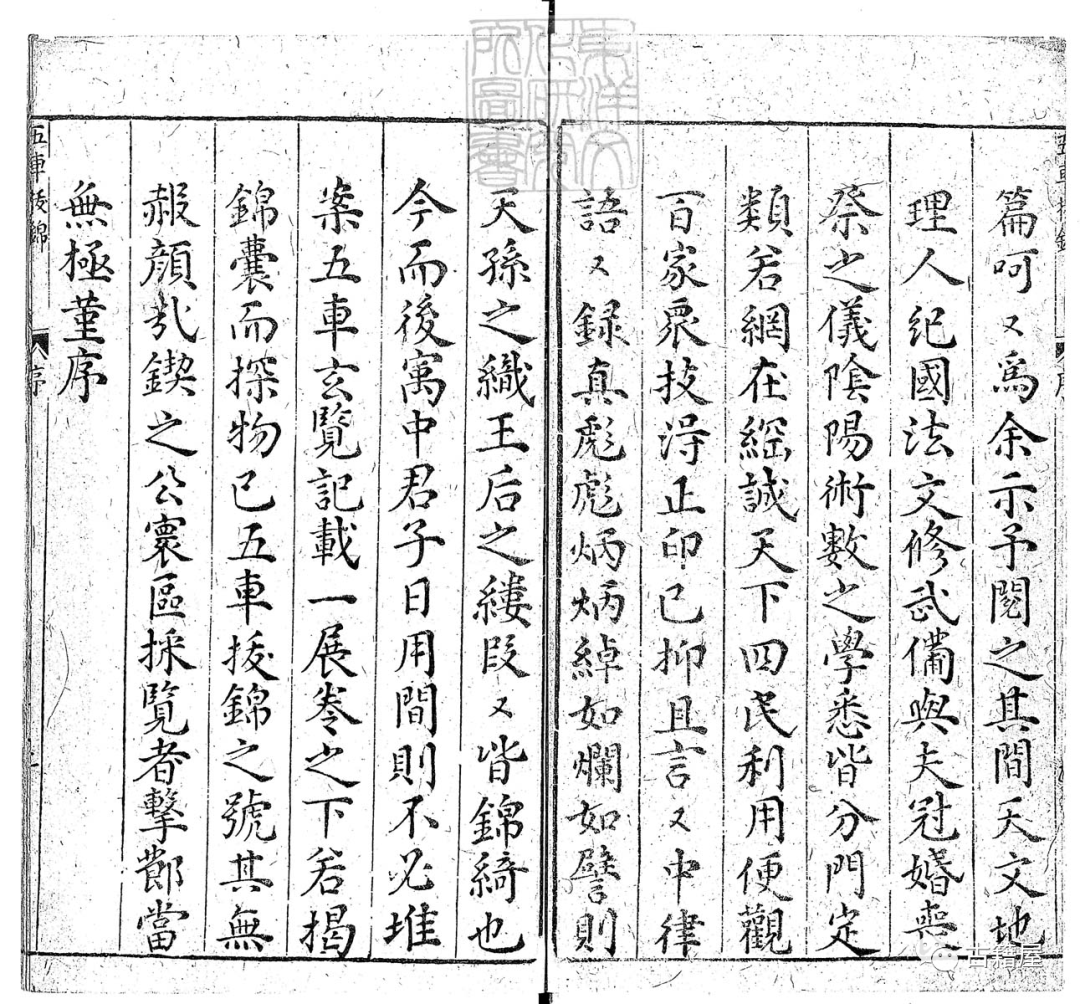 篇呵々為余示予閱之其間天文地
理人紀國法文修武備與夫冠婚喪
祭之儀陰陽術數之學悉皆分門定
類若網在綱誠天下四民利用便觀
百家眾技淂正印已抑且言々中律
語々錄真彪彪炳炳綽如爛如譬則
天孫之織王后之縷段々皆錦綺也
今而後寓中君子日用間則不必堆
案五車玄覽記載一展卷之下若揭
錦囊而探物已五車拔錦之號其無
赧顏哉鍥之公寰區採覽者擊節當
無極菫序
五車拔錦
序
東洋文化研究所圖書
古籍屋